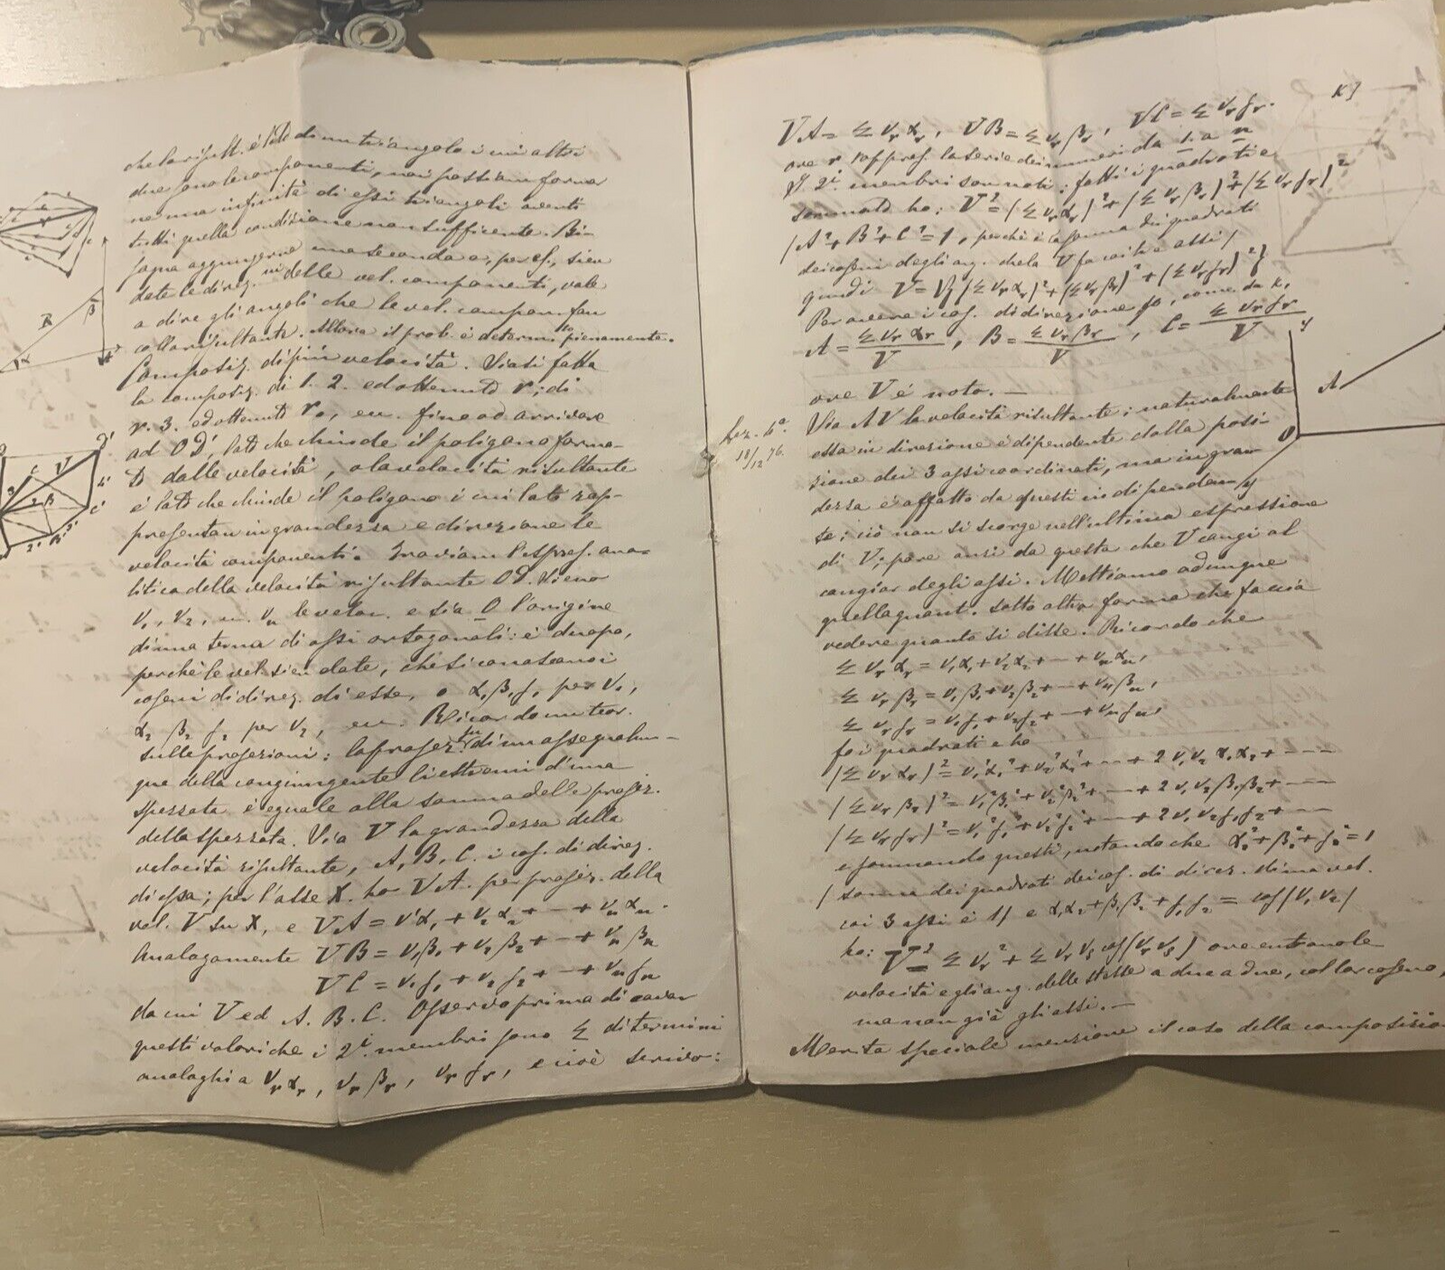 che la risult. è lato di un triangolo i cui altri
due sono le componenti, noi possiam formar
ne una infinità di essi triangoli aventi
tutti quella condizione non sufficente. Bi-
sogna aggiungerne una seconda e, per es., sien
date le direz. delle vel. componenti, vale
a dire gli angoli che le vel. compon. fan
colla risultante. Allora il prob. è determ. pienamente.
Composiz. di più velocità. Siasi fatta
la composiz. di 1. 2. ed ottenuto r; di
r. 3. ed ottenuto r₂, ecc. fino ad arrivare
ad OD', lato che chiude il poligono forma-
to dalle velocità, e la velocità risultante
è lato che chiude il poligono i cui lati rap-
presentan in grandezza e direzione le
velocità componenti. Troviam l'espress. ana-
litica della velocità risultante OD'. Sieno
v₁, v₂, ... vₙ le veloc. e sia O l'origine
di una terna di assi ortogonali: è duopo,
perchè le vel. sien date, che si conoscano i
coseni di direz. di esse, o α₁ β₁ γ₁ per v₁,
α₂ β₂ γ₂ per v₂, ecc. Ricordo un teor.
sulle proiezioni: la proiez. su di un asse qualun-
que della congiungente li estremi d'una
spezzata è eguale alla somma delle proiez.
della spezzata. Sia V la grandezza della
velocità risultante, A, B, C. i cos. di direz.
di essa; per l'asse X. ho VA. per proiez. della
vel. V su X, e VA = v₁α₁ + v₂α₂ + --- + vₙαₙ.
Analogamente VB = v₁β₁ + v₂β₂ + --- + vₙβₙ
VC = v₁γ₁ + v₂γ₂ + --- + vₙγₙ
da cui V ed A. B. C. Osservo prima di cavar
questi valori che i 2ⁱ. membri sono Σ di termini
analoghi a vᵣαᵣ, vᵣβᵣ, vᵣγᵣ, e cioè scrivo:
R
β
α
V
K)
VA = Σ vᵣαᵣ, VB = Σ vᵣβᵣ, VC = Σ vᵣγᵣ.
ove r rappres. la serie dei numeri da 1 a n
I 2ⁱ. membri son noti; fatti i quadrati e
sommato ho: V² = (Σ vᵣαᵣ)² + (Σ vᵣβᵣ)² + (Σ vᵣγᵣ)²
(A² + B² + C² = 1, perchè è la somma dei quadrati
dei coseni degli ang. che la V fa coi tre assi)
quindi V = √{(Σ vᵣαᵣ)² + (Σ vᵣβᵣ)² + (Σ vᵣγᵣ)²}
Per avere i cos. di direzione fo, come da K,
A = Σ vᵣαᵣ / V, B = Σ vᵣβᵣ / V, C = Σ vᵣγᵣ / V
ove V è noto. —
Lez. 4ª.
18/12 76.
Sia AV la velocità risultante; naturalmente
essa in direzione è dipendente dalla posi-
zione dei 3 assi coordinati, ma in gran-
dezza è affatto da questi indipenden-
te; ciò non si scorge nell'ultima espressione
di V; pare anzi da questa che V cangi al
cangiar degli assi. Mettiamo adunque
quella quant. sotto altra forma che faccia
vedere quanto si disse. Ricordo che
Σ vᵣαᵣ = v₁α₁ + v₂α₂ + --- + vₙαₙ,
Σ vᵣβᵣ = v₁β₁ + v₂β₂ + --- + vₙβₙ,
Σ vᵣγᵣ = v₁γ₁ + v₂γ₂ + --- + vₙγₙ,
fo i quadrati e ho
(Σ vᵣαᵣ)² = v₁²α₁² + v₂²α₂² + --- + 2 v₁v₂α₁α₂ + ----
(Σ vᵣβᵣ)² = v₁²β₁² + v₂²β₂² + --- + 2 v₁v₂β₁β₂ + ----
(Σ vᵣγᵣ)² = v₁²γ₁² + v₂²γ₂² + --- + 2 v₁v₂γ₁γ₂ + ----
e sommando questi, notando che αₙ² + βₙ² + γₙ² = 1
(somma dei quadrati dei cos. di direz. di una vel.
coi 3 assi è 1) e α₁α₂ + β₁β₂ + γ₁γ₂ = cos(v₁ v₂)
ho: V² = Σ vᵣ² + Σ vᵣ vₛ cos(vᵣ vₛ) ove entran le
velocità e gli ang. delle stesse a due a due, col lor coseno,
ma non già gli assi. —
Merita speciale menzione il caso della composizio
y
A
O